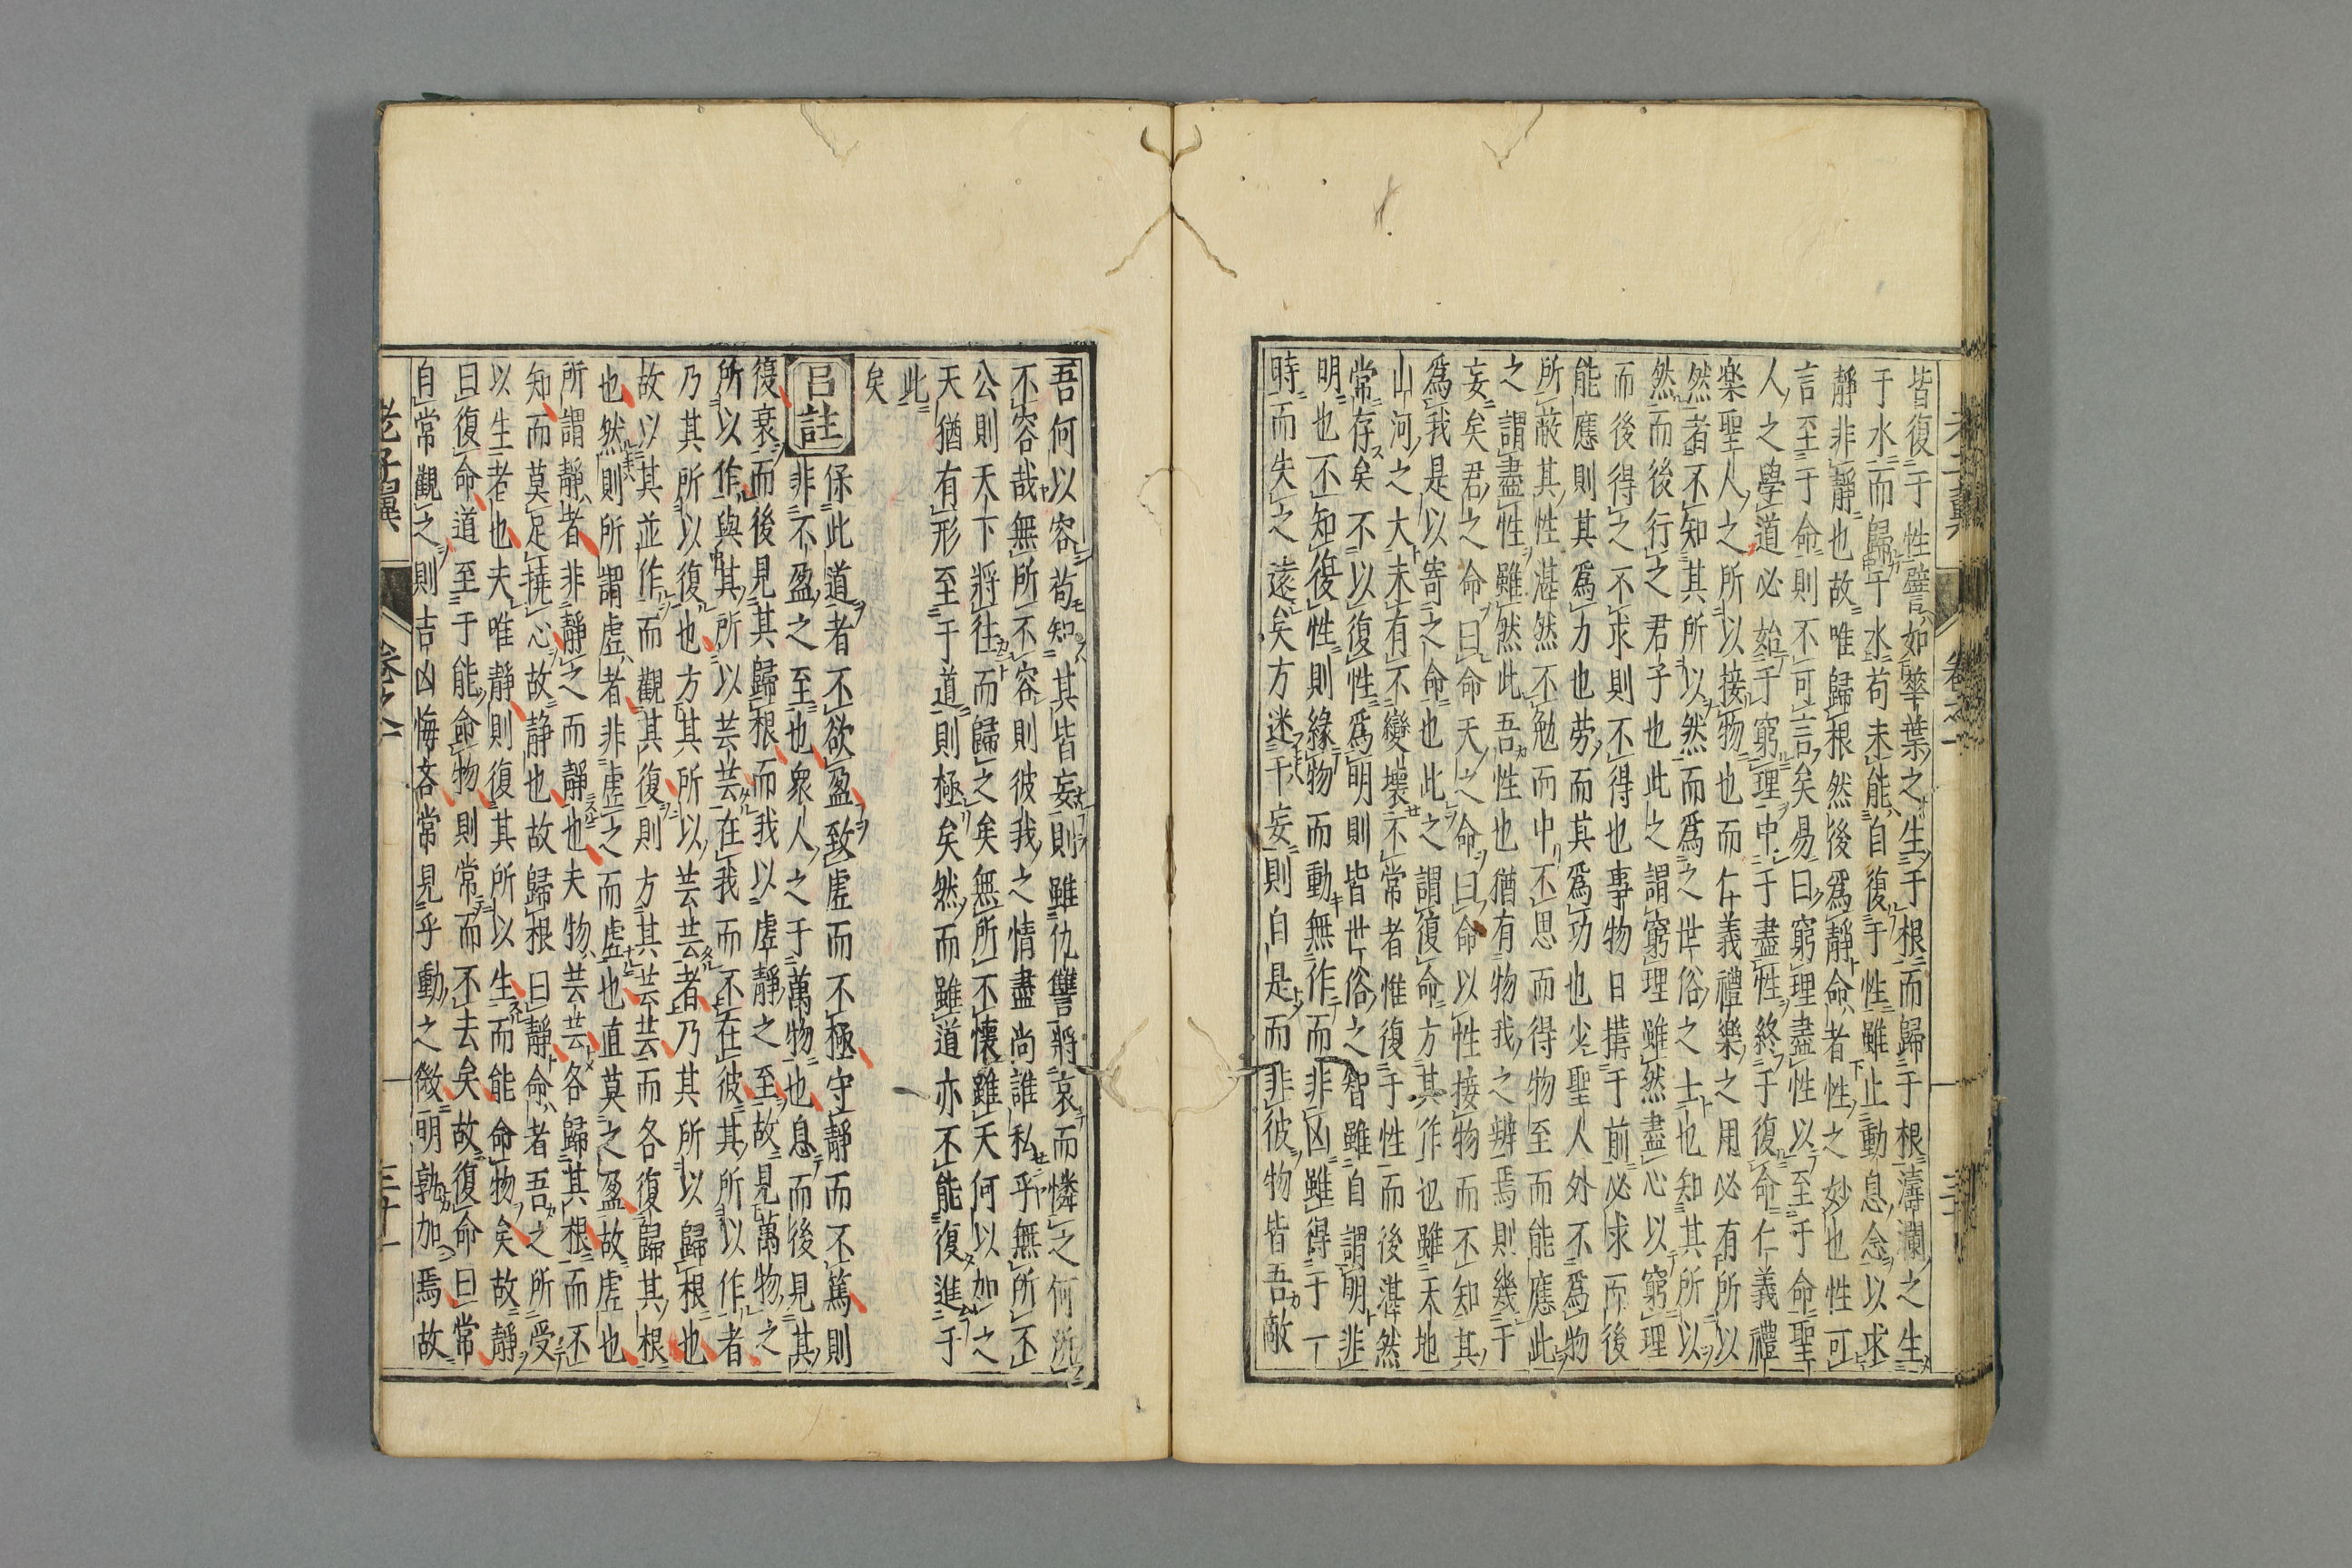 皆復于性譬如華葉之生于根而歸于根濤瀾之生
于水而歸于水苟未能自復于性雖止動息念以求
靜非靜也故唯歸根然後爲靜命者性之妙也性可
言至于命則不可言矣易曰窮理盡性以至于命聖
人之學道必始于窮理中于盡性終于復命仁義禮
楽聖人之所以接物也而仁義禮樂之用必有所以
然者不知其所以然而爲之世俗之士也知其所以
然而後行之君子也此之謂窮理雖然盡心以窮理
而後得之不求則不得也事物日搆于前必求而後
能應則其爲力也勞而其爲功也少聖人外不爲物
所蔽其性湛然不勉而中不思而得物至而能應此
之謂盡性雖然此吾性也猶有物我之辨焉則幾于
妄矣君之命曰命天之命曰命以性接物而不知其
爲我是以寄之命也此之謂復命方其作也雖天地
山河之大未有不變壞不常者惟復于性而後湛然
常存矣不以復性爲明則皆世俗之智雖自謂明非
明也不知復性則緣物而動無作而非凶雖得于一
時而失之遠矣方迷于妄則自是而非彼物皆吾敵
吾何以容苟知其皆妄則雖仇讐將哀而憐之何所
不容哉無所不容則彼我之情盡尚誰私乎無所不
公則天下將往而歸之矣無所不懷雖天何以加之
天猶有形至于道則極矣然而雖道亦不能復進于
此
矣
呂註
保此道者不欲盈致虛而不極守靜而不篤則
非不盈之至也衆人之于萬物也息而後見其
復衰而後見其歸根而我以虛靜之至故見萬物之
所以作與其所以芸芸在我而不在彼其所以作者
乃其所以復也方其所以芸芸者乃其所以歸根也
故以其並作而觀其復則方其芸芸而各復歸其根
也然則所謂虛者非虛之而虛也直莫之盈故虛也
所謂靜者非靜之而靜也夫物芸芸各歸其根而不
知而莫足撓心故静也故歸根曰靜命者吾之所受
以生者也夫唯靜則復其所以生而能命物矣故靜
曰復命道至于能命物則常而不去矣故復命曰常
自常觀之則吉凶悔吝常見乎動之微明孰加焉故
老子翼
卷之一
三十一